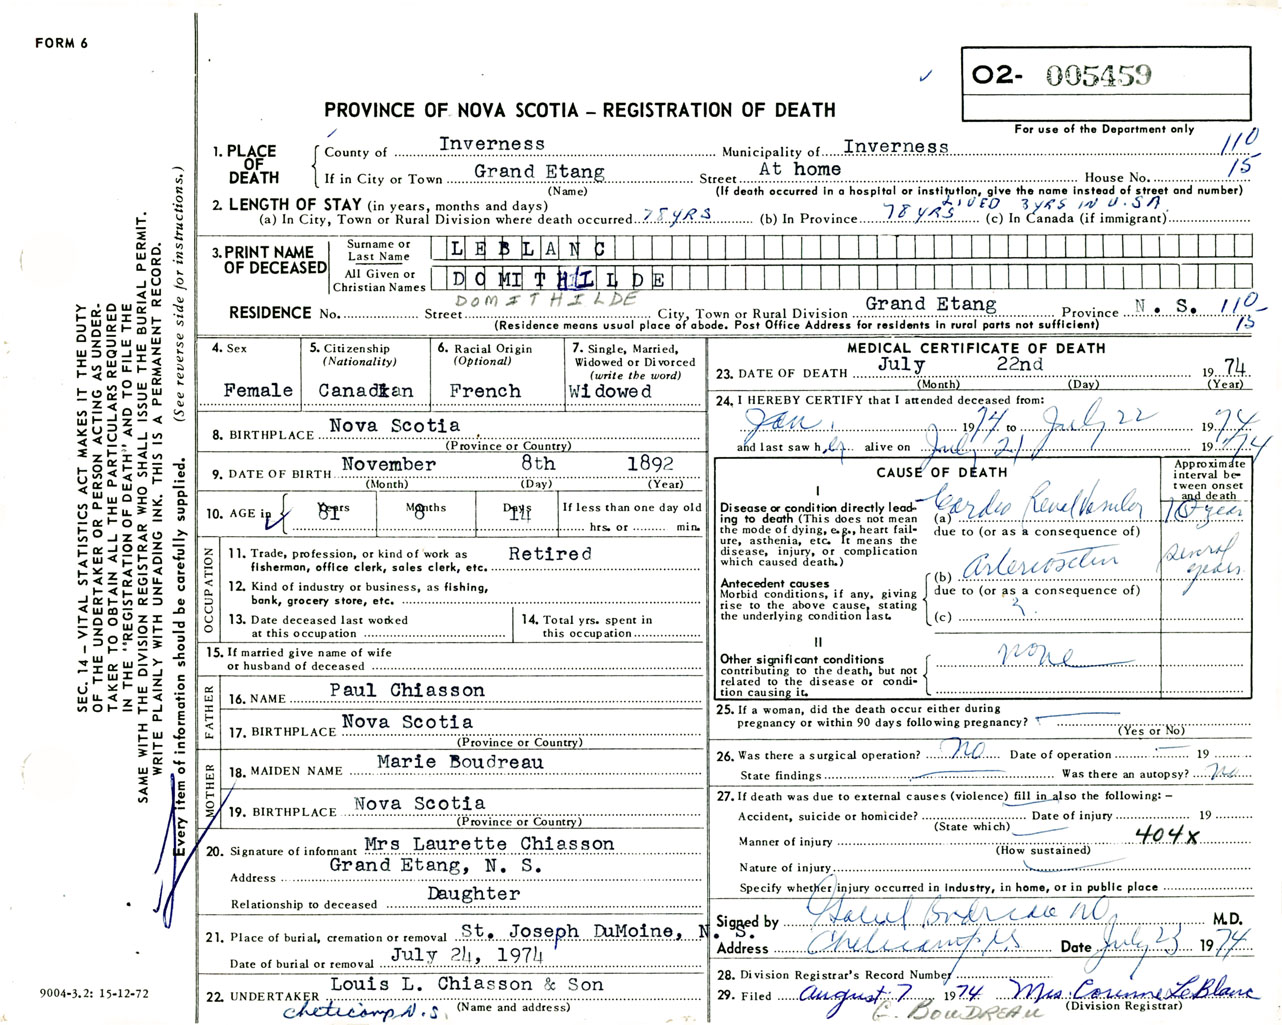 FORM 6
O2- 005459
PROVINCE OF NOVA SCOTIA – REGISTRATION OF DEATH
For use of the Department only
1. PLACE OF DEATH
County of Inverness Municipality of Inverness 110
If in City or Town Grand Etang Street At home House No. 15
(Name) (If death occurred in a hospital or institution, give the name instead of street and number)
2. LENGTH OF STAY (in years, months and days) LIVED 3 YRS IN U.S.A.
(a) In City, Town or Rural Division where death occurred 78 YRS (b) In Province 78 YRS (c) In Canada (if immigrant)
3. PRINT NAME OF DECEASED
Surname or Last Name LEBLANC
All Given or Christian Names DOMITHILDE
DOMITHILDE
RESIDENCE No. Street City, Town or Rural Division Grand Etang Province N. S. 110
(Residence means usual place of abode. Post Office Address for residents in rural parts not sufficient) 15
4. Sex
Female
5. Citizenship
(Nationality)
Canadian
6. Racial Origin
(Optional)
French
7. Single, Married,
Widowed or Divorced
(write the word)
Widowed
8. BIRTHPLACE Nova Scotia
(Province or Country)
9. DATE OF BIRTH November 8th 1892
(Month) (Day) (Year)
10. AGE in Years 81 Months 8 Days 14 If less than one day old
hrs. or min.
OCCUPATION
11. Trade, profession, or kind of work as Retired
fisherman, office clerk, sales clerk, etc.
12. Kind of industry or business, as fishing,
bank, grocery store, etc.
13. Date deceased last worked
at this occupation
14. Total yrs. spent in
this occupation
15. If married give name of wife
or husband of deceased
FATHER
16. NAME Paul Chiasson
17. BIRTHPLACE Nova Scotia
(Province or Country)
MOTHER
18. MAIDEN NAME Marie Boudreau
19. BIRTHPLACE Nova Scotia
(Province or Country)
20. Signature of informant Mrs Laurette Chiasson
Address Grand Etang, N. S.
Relationship to deceased Daughter
21. Place of burial, cremation or removal St. Joseph DuMoine, N. S.
Date of burial or removal July 24, 1974
22. UNDERTAKER Louis L. Chiasson & Son
(Name and address)
Cheticamp N.S.
MEDICAL CERTIFICATE OF DEATH
23. DATE OF DEATH July 22nd 1974
(Month) (Day) (Year)
24. I HEREBY CERTIFY that I attended deceased from:
Jan. 1974 to July 22 1974
and last saw her alive on July 21 1974
CAUSE OF DEATH
Approximate
interval be-
tween onset
and death
I
Disease or condition directly lead-
ing to death (This does not mean
the mode of dying, e.g., heart fail-
ure, asthenia, etc. It means the
disease, injury, or complication
which caused death.)
(a) Cardio Renal Vascular 10+ year
due to (or as a consequence of)
Antecedent causes
Morbid conditions, if any, giving
rise to the above cause, stating
the underlying condition last.
(b) several years
due to (or as a consequence of)
(c) ?
II
Other significant conditions
contributing to the death, but not
related to the disease or condi-
tion causing it.
none
25. If a woman, did the death occur either during
pregnancy or within 90 days following pregnancy?
(Yes or No)
26. Was there a surgical operation? No Date of operation 19
State findings Was there an autopsy? No
27. If death was due to external causes (violence) fill in also the following: –
Accident, suicide or homicide? Date of injury 19
(State which)
Manner of injury 404X
(How sustained)
Nature of injury
Specify whether injury occurred in Industry, in home, or in public place
Signed by Boudreau MD M.D.
Address Cheticamp NS Date July 23 1974
28. Division Registrar's Record Number
29. Filed August 7 1974 Mrs. Corinne LeBlanc
(Division Registrar)
C. BOUDREAU
SEC. 14 – VITAL STATISTICS ACT MAKES IT THE DUTY
OF THE UNDERTAKER OR PERSON ACTING AS UNDER-
TAKER TO OBTAIN ALL THE PARTICULARS REQUIRED
IN THE "REGISTRATION OF DEATH" AND TO FILE THE
SAME WITH THE DIVISION REGISTRAR WHO SHALL ISSUE THE BURIAL PERMIT.
WRITE PLAINLY WITH UNFADING INK. THIS IS A PERMANENT RECORD.
Every item of information should be carefully supplied. (See reverse side for instructions.)
9004-3.2: 15-12-72